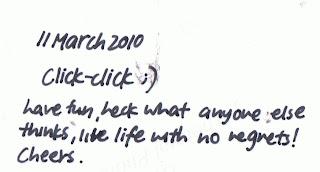 11 March 2010
Click-click ;)
have fun, heck what anyone else
thinks, live life with no regrets!
Cheers.